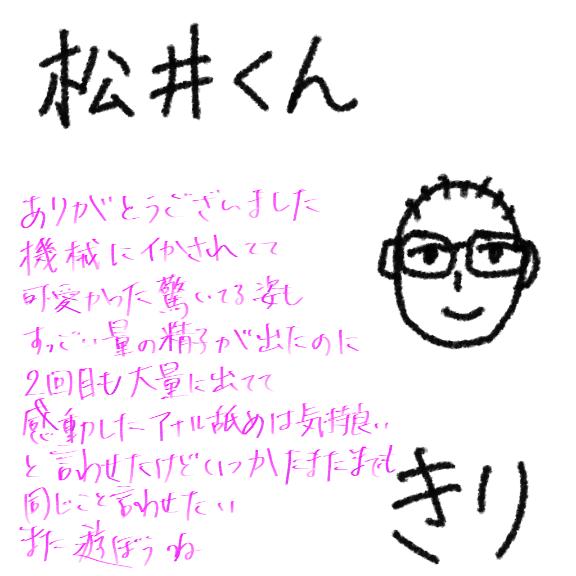 松井くん
ありがとうございました
機械にイかされてて
可愛かった驚いてる姿も
すっごい量の精子が出たのに
2回目も大量に出てて
感動したアナル舐めは気持良い
と言わせたけどいつかたまたまでも
同じこと言わせたい
また遊ぼうね
きり